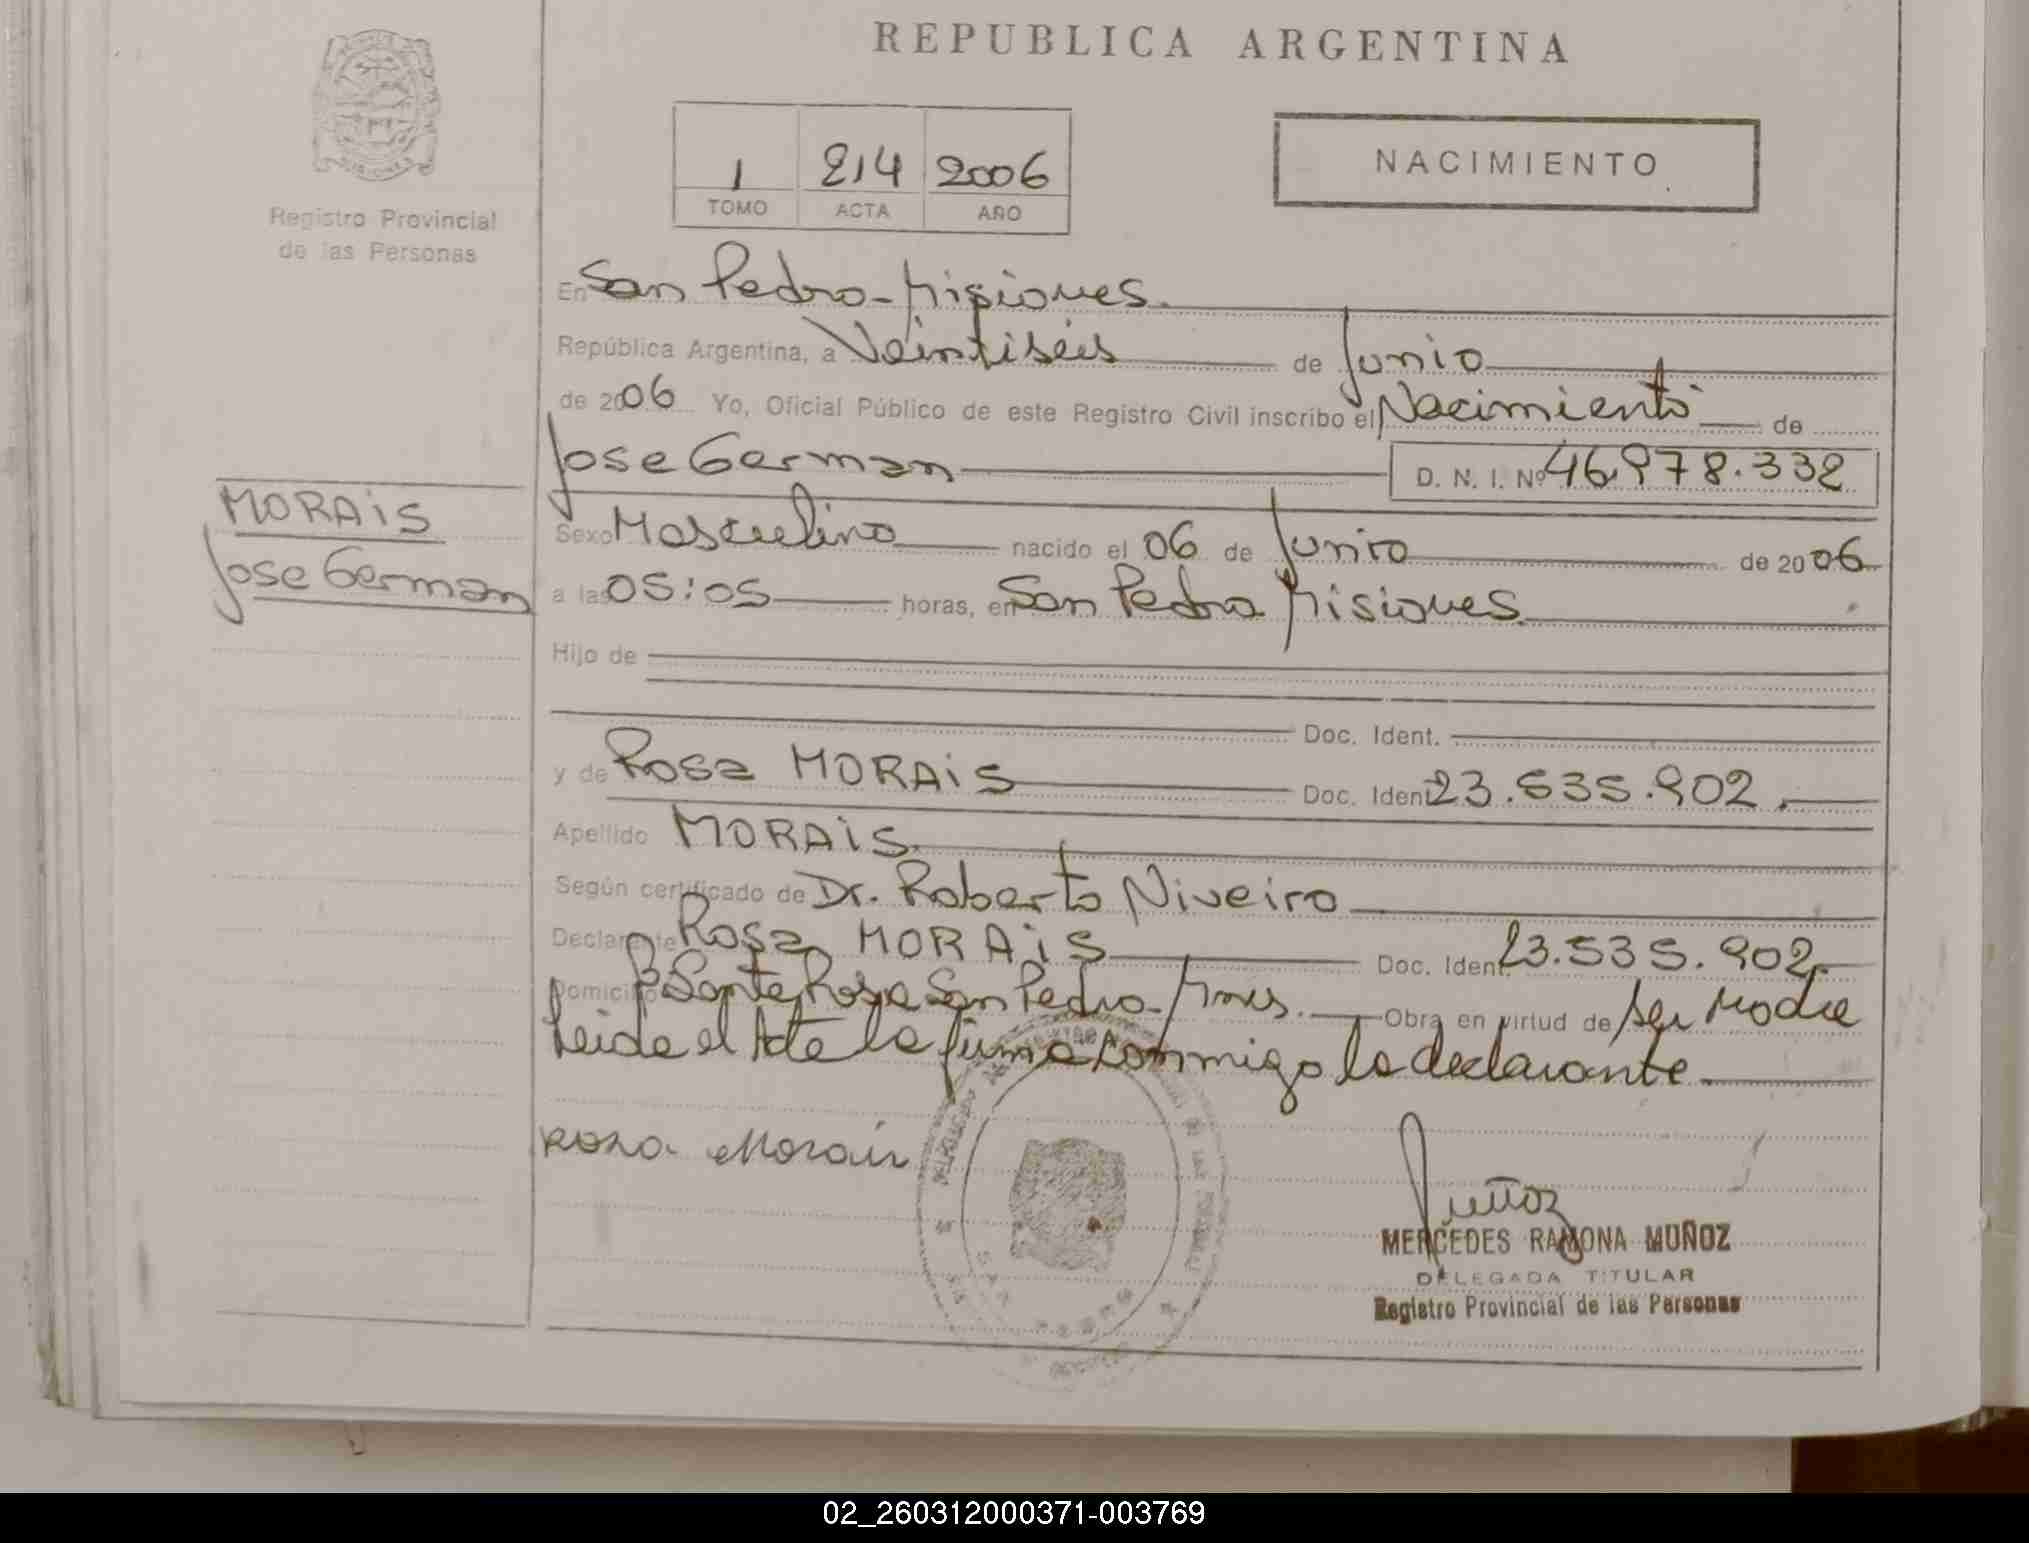 REPUBLICA ARGENTINA
Registro Provincial
de las Personas
1 214 2006
TOMO ACTA AÑO
NACIMIENTO
En San Pedro - Misiones.
República Argentina, a Veintiséis de Junio
de 2006 Yo, Oficial Público de este Registro Civil inscribo el Nacimiento de
Jose German D. N. I. Nº 46.978.332
MORAiS
Jose German
Sexo Masculino nacido el 06 de Junio de 2006
a las 05:05 horas, en San Pedro Misiones.
Hijo de
Doc. Ident.
y de Rosa MORAiS Doc. Ident. 23.535.902.
Apellido MORAiS.
Según certificado de Dr. Roberto Niveiro
Declarante Rosa MORAiS Doc. Ident. 23.535.902.
Domicilio Santa Rosa San Pedro - Mnes. Obra en virtud de ser Madre
Leida el Acta la firma conmigo la declarante.
Rosa Morais
Muñoz
MERCEDES RAMONA MUÑOZ
DELEGADA TITULAR
Registro Provincial de las Personas
02_260312000371-003769